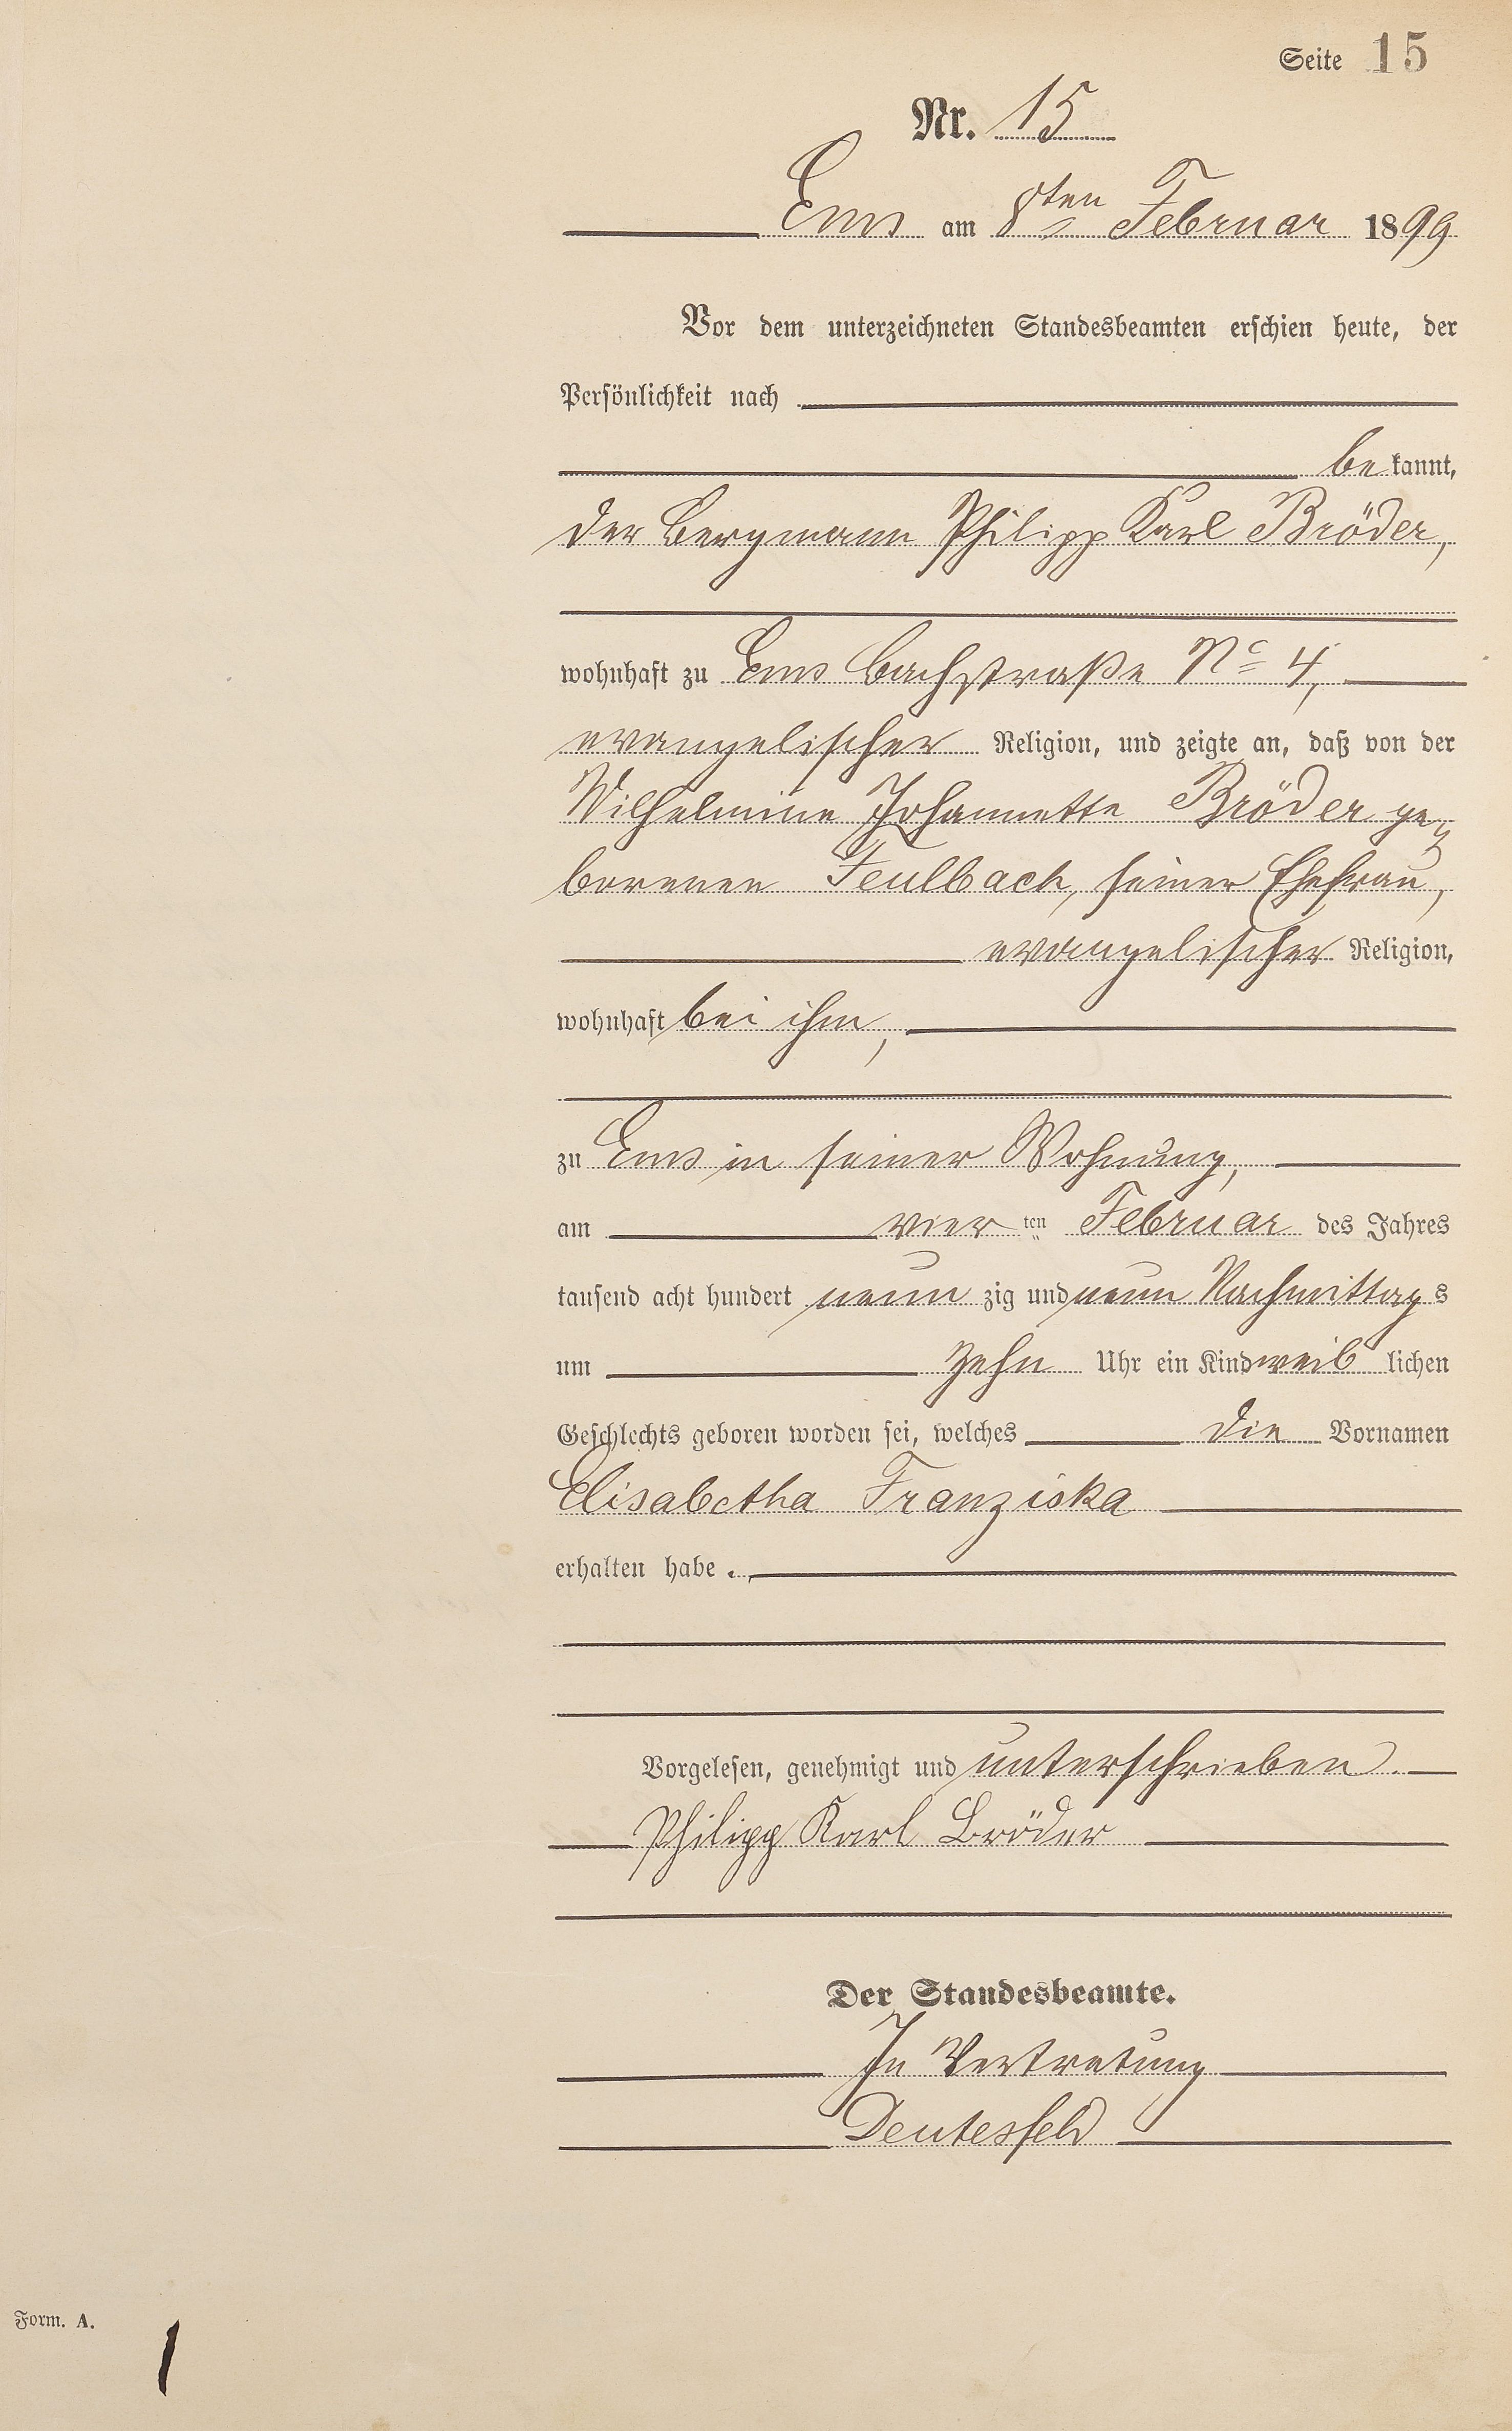 Seite 15
Nr. 15
Ems am 8ten Februar 1899
Vor dem unterzeichneten Standesbeamten erschien heute, der
Persönlichkeit nach
bekannt,
der Bergmann Philipp Karl Bröder,
wohnhaft zu Ems Bachstraße No 4,
evangelischer Religion, und zeigte an, daß von der
Wilhelmine Johannette Bröder ge-
borenen Feulbach, seiner Ehefrau,
evangelischer Religion,
wohnhaft bei ihm,
zu Ems in seiner Wohnung,
am vier ten Februar des Jahres
tausend acht hundert neun zig und neun Nachmittags
um zehn Uhr ein Kind weiblichen
Geschlechts geboren worden sei, welches die Vornamen
Elisabetha Franziska
erhalten habe.
Vorgelesen, genehmigt und unterschrieben.
Philipp Karl Bröder
Der Standesbeamte.
In Vertretung
Deutesfeld
Form. A.